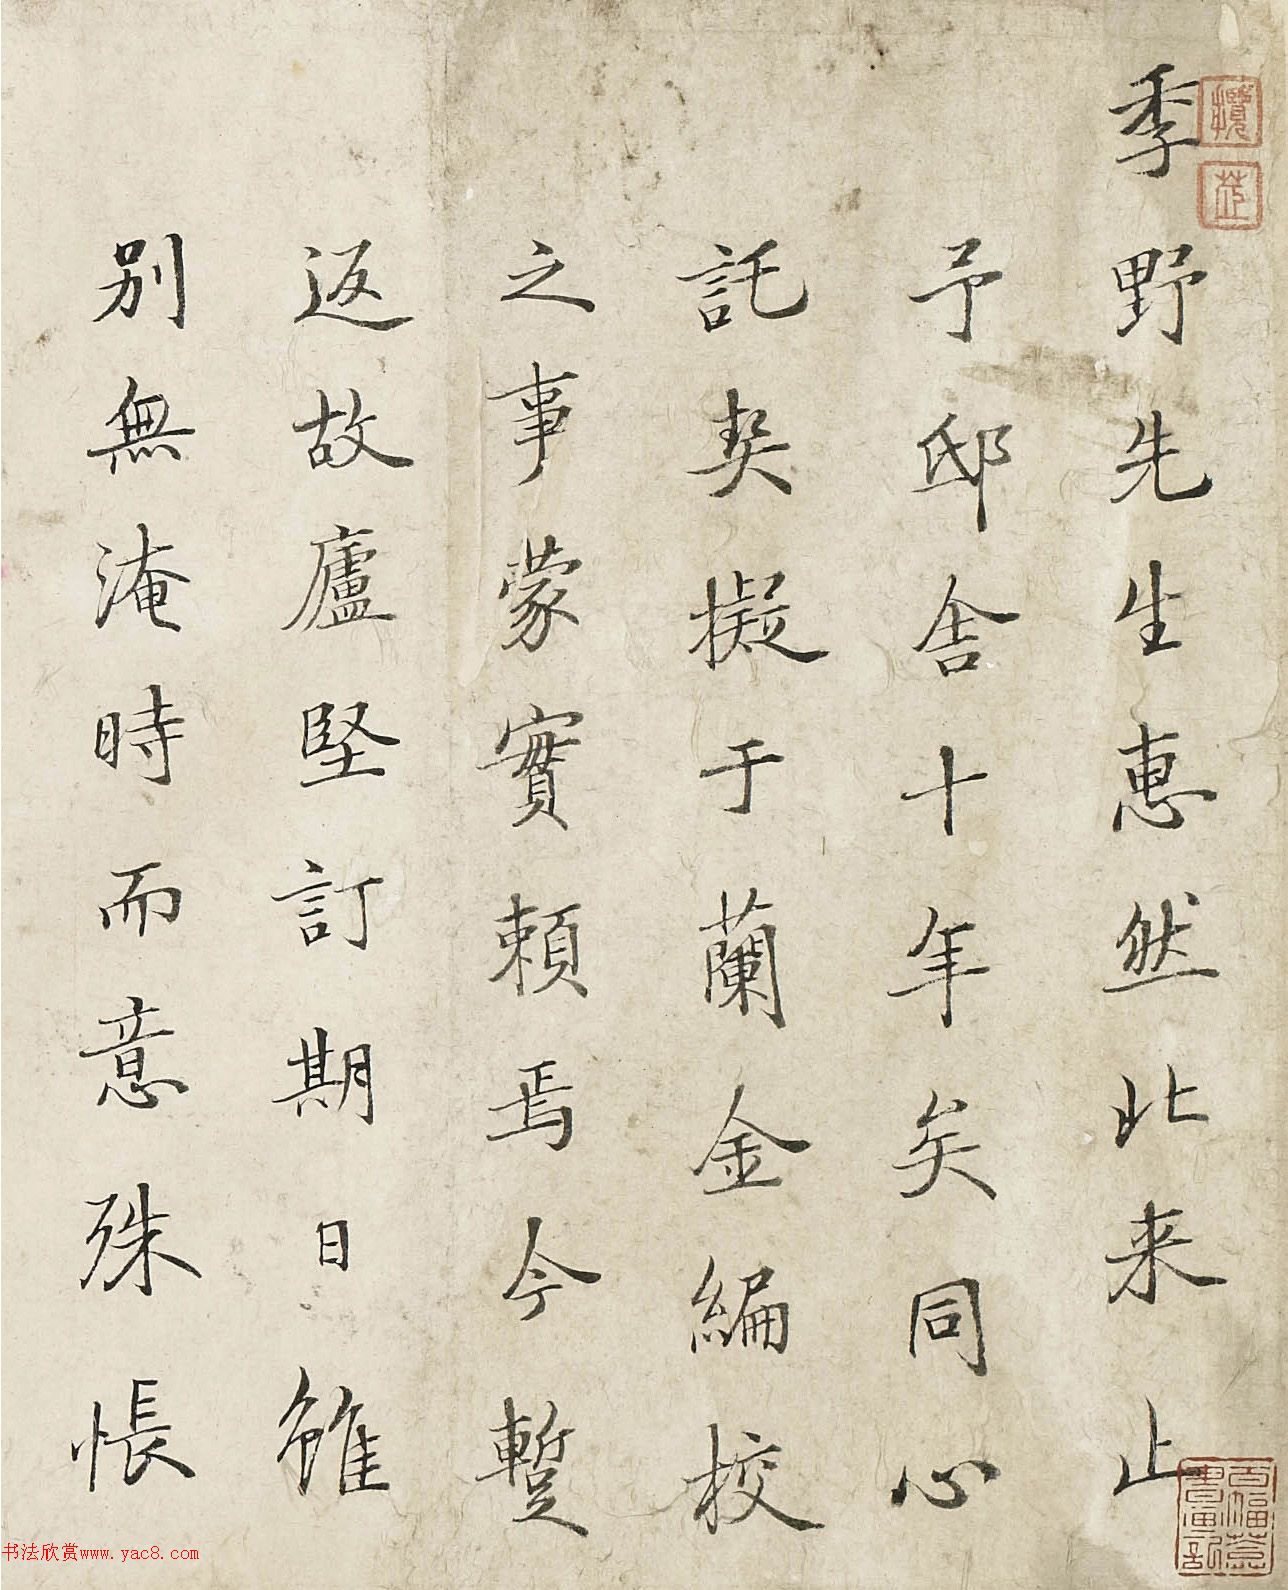 季野先生惠然北来止
予邸舍十年矣同心
託契擬于蘭金編校
之事蒙實賴焉今蹔
返故廬堅訂期日雖
別無淹時而意殊悵
书法欣赏www.yac8.com